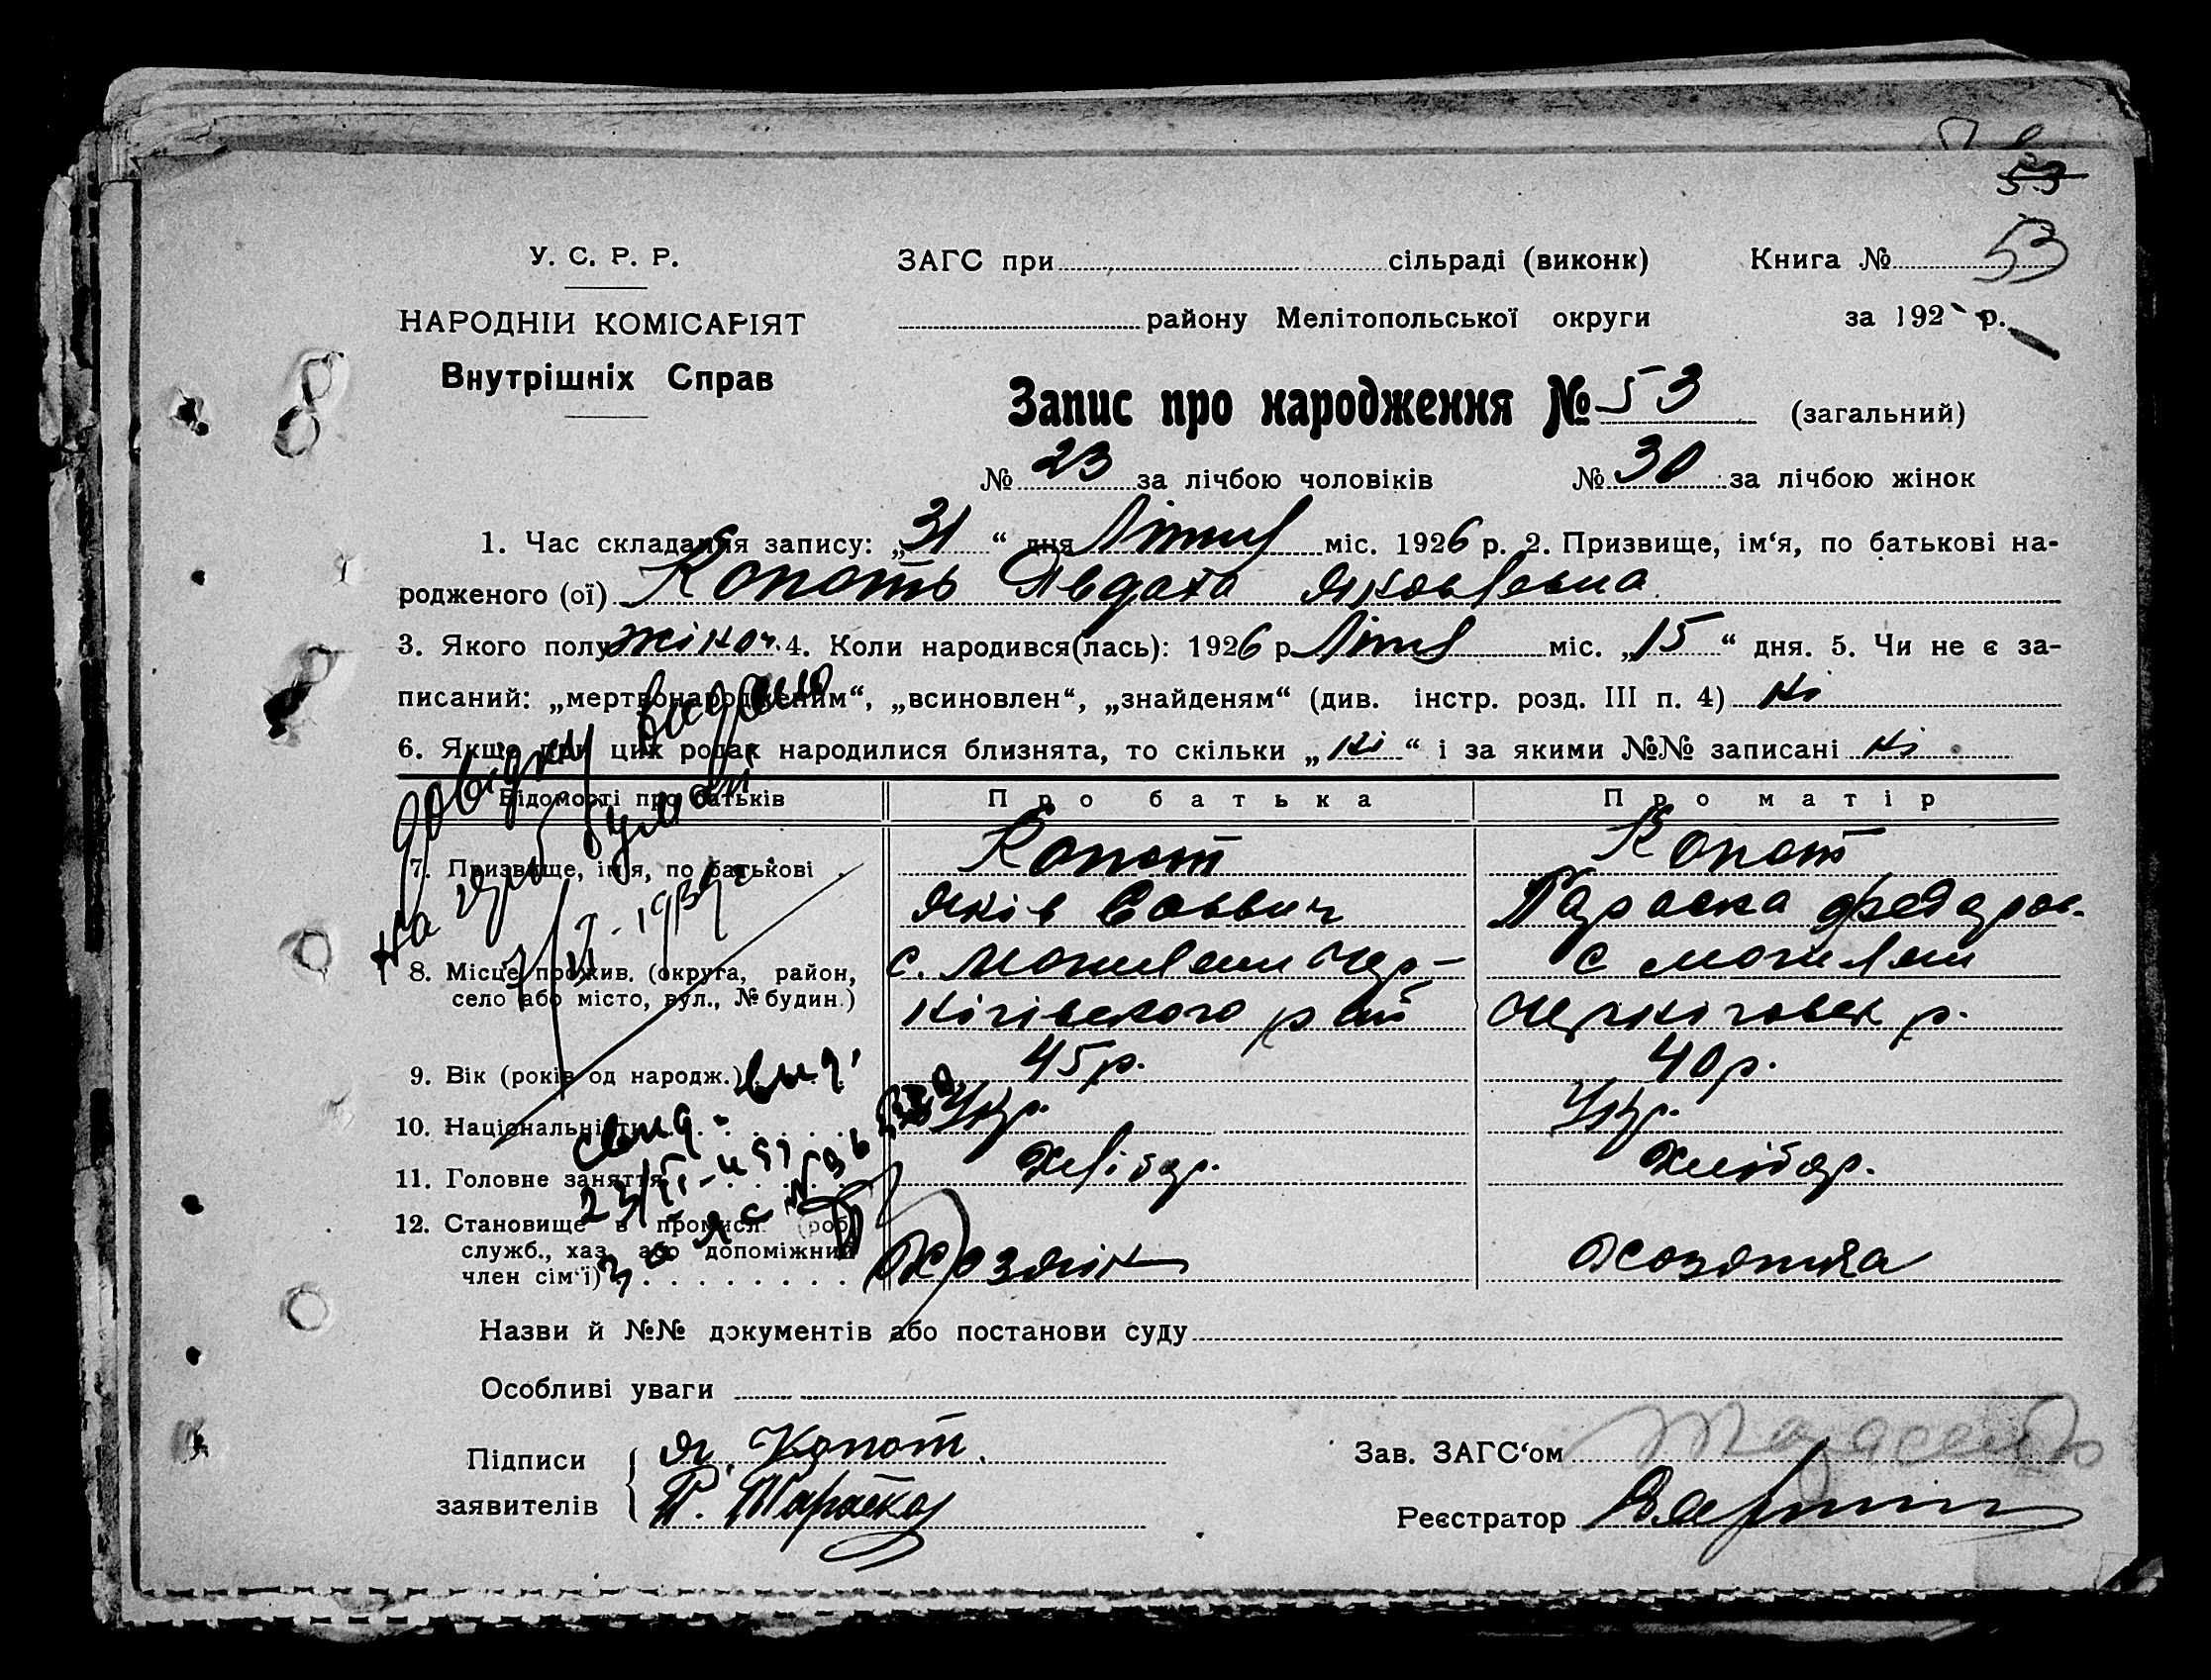 53
53
У. С. Р. Р.
ЗАГС при сільраді (виконк) Книга №
НАРОДНІЙ КОМІСАРІЯТ
району Мелітопольської округи за 192 р.
Внутрішніх Справ
Запис про народження № 53 (загальний)
№ 23 за лічбою чоловіків № 30 за лічбою жінок
1. Час складання запису: „31“ дня міс. 1926 р. 2. Призвище, ім‘я, по батькові на-
родженого (ої) Копоть Явдаха Яковлевна
3. Якого полу жіноч. 4. Коли народився(лась): 1926 р міс. „15“ дня. 5. Чи не є за-
писаний: „мертвонародженим“, „всиновлен“, „знайденям“ (див. інстр. розд. III п. 4) Ні
6. Якщо при цих родах народилися близнята, то скільки „Ні“ і за якими №№ записані Ні
довідку видано
Відомості про батьків Про батька Про матір
7. Призвище, ім‘я, по батькові Копот Копот
Яків Саввич Параска Федаров.
На
8. Місце прожив. (округа, район, с. Могиляни Чер- с Могиляни
село або місто, вул., № будин.) нігівського рай Черніговск р.
9. Вік (років од народж.) 45 р. 40 р.
выд.
10. Національність Укр. Укр.
свид.
11. Головне заняття Хлібор. Хлібор.
12. Становище в промисл. (роб.
служб., хаз. або допоміжний Хозяїн Хозяйка
член сім‘ї)
Назви й №№ документів або постанови суду
Особливі уваги
Підписи Я. Копот.
заявителів П. Параска
Зав. ЗАГС‘ом
Реєстратор